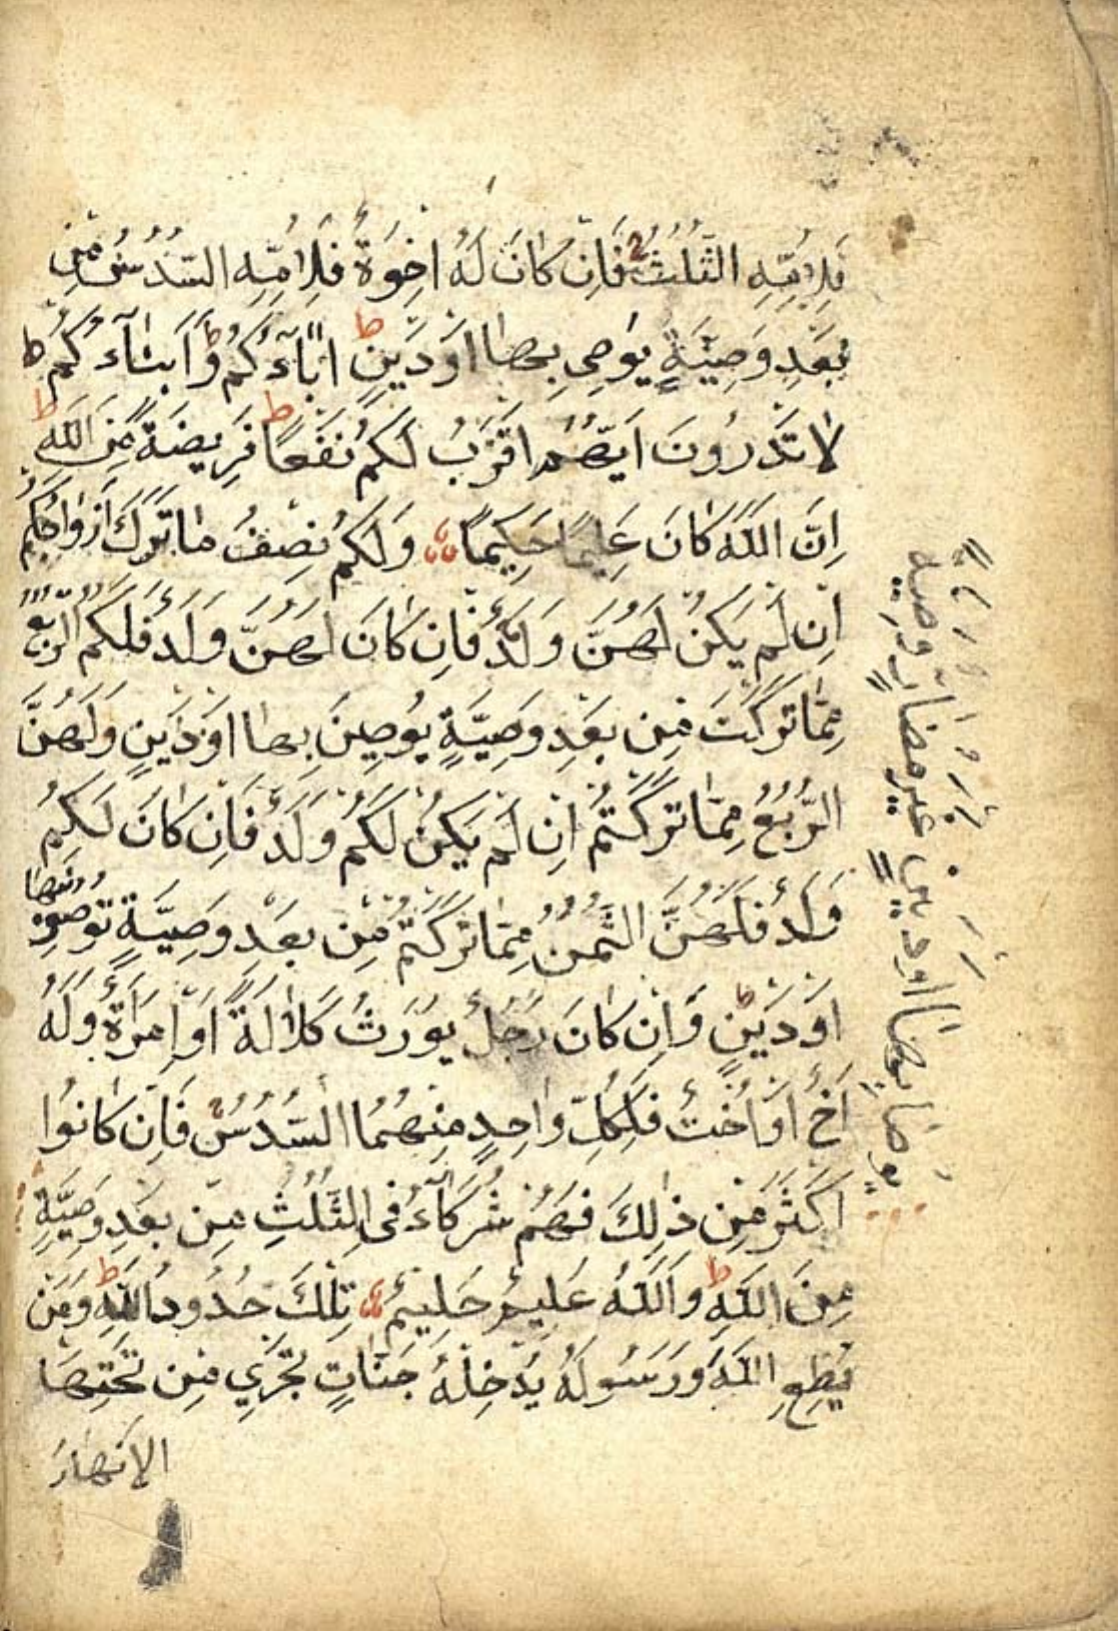 فَلِاُمِّهِ الثُّلُثُ فَاِنْ كَانَ لَهُ اِخْوَةٌ فَلِاُمِّهِ السُّدُسُ مِنْ
بَعْدِ وَصِيَّةٍ يُوصِي بِهَا اَوْ دَيْنٍ ط اٰبَاؤُكُمْ وَاَبْنَاؤُكُمْ ط
لَا تَدْرُونَ اَيُّهُمْ اَقْرَبُ لَكُمْ نَفْعًا ط فَرِيضَةً مِنَ اللّٰهِ ط
اِنَّ اللّٰهَ كَانَ عَلِيمًا حَكِيمًا وَلَكُمْ نِصْفُ مَا تَرَكَ اَزْوَاجُكُمْ
اِنْ لَمْ يَكُنْ لَهُنَّ وَلَدٌ فَاِنْ كَانَ لَهُنَّ وَلَدٌ فَلَكُمُ الرُّبُعُ
مِمَّا تَرَكْنَ مِنْ بَعْدِ وَصِيَّةٍ يُوصِينَ بِهَا اَوْ دَيْنٍ وَلَهُنَّ
الرُّبُعُ مِمَّا تَرَكْتُمْ اِنْ لَمْ يَكُنْ لَكُمْ وَلَدٌ فَاِنْ كَانَ لَكُمْ
وَلَدٌ فَلَهُنَّ الثُّمُنُ مِمَّا تَرَكْتُمْ مِنْ بَعْدِ وَصِيَّةٍ تُوصُونَ بِهَا
اَوْ دَيْنٍ ط وَاِنْ كَانَ رَجُلٌ يُورَثُ كَلَالَةً اَوِ امْرَاَةٌ وَلَهُ
اَخٌ اَوْ اُخْتٌ فَلِكُلِّ وَاحِدٍ مِنْهُمَا السُّدُسُ فَاِنْ كَانُوا
اَكْثَرَ مِنْ ذٰلِكَ فَهُمْ شُرَكَاءُ فِي الثُّلُثِ مِنْ بَعْدِ وَصِيَّةٍ
مِنَ اللّٰهِ ط وَاللّٰهُ عَلِيمٌ حَلِيمٌ تِلْكَ حُدُودُ اللّٰهِ ط وَمَنْ
يُطِعِ اللّٰهَ وَرَسُولَهُ يُدْخِلْهُ جَنَّاتٍ تَجْرِي مِنْ تَحْتِهَا
الْاَنْهَارُ
يُوصَى بِهَا اَوْ دَيْنٍ غَيْرَ مُضَارٍّ وَصِيَّةً